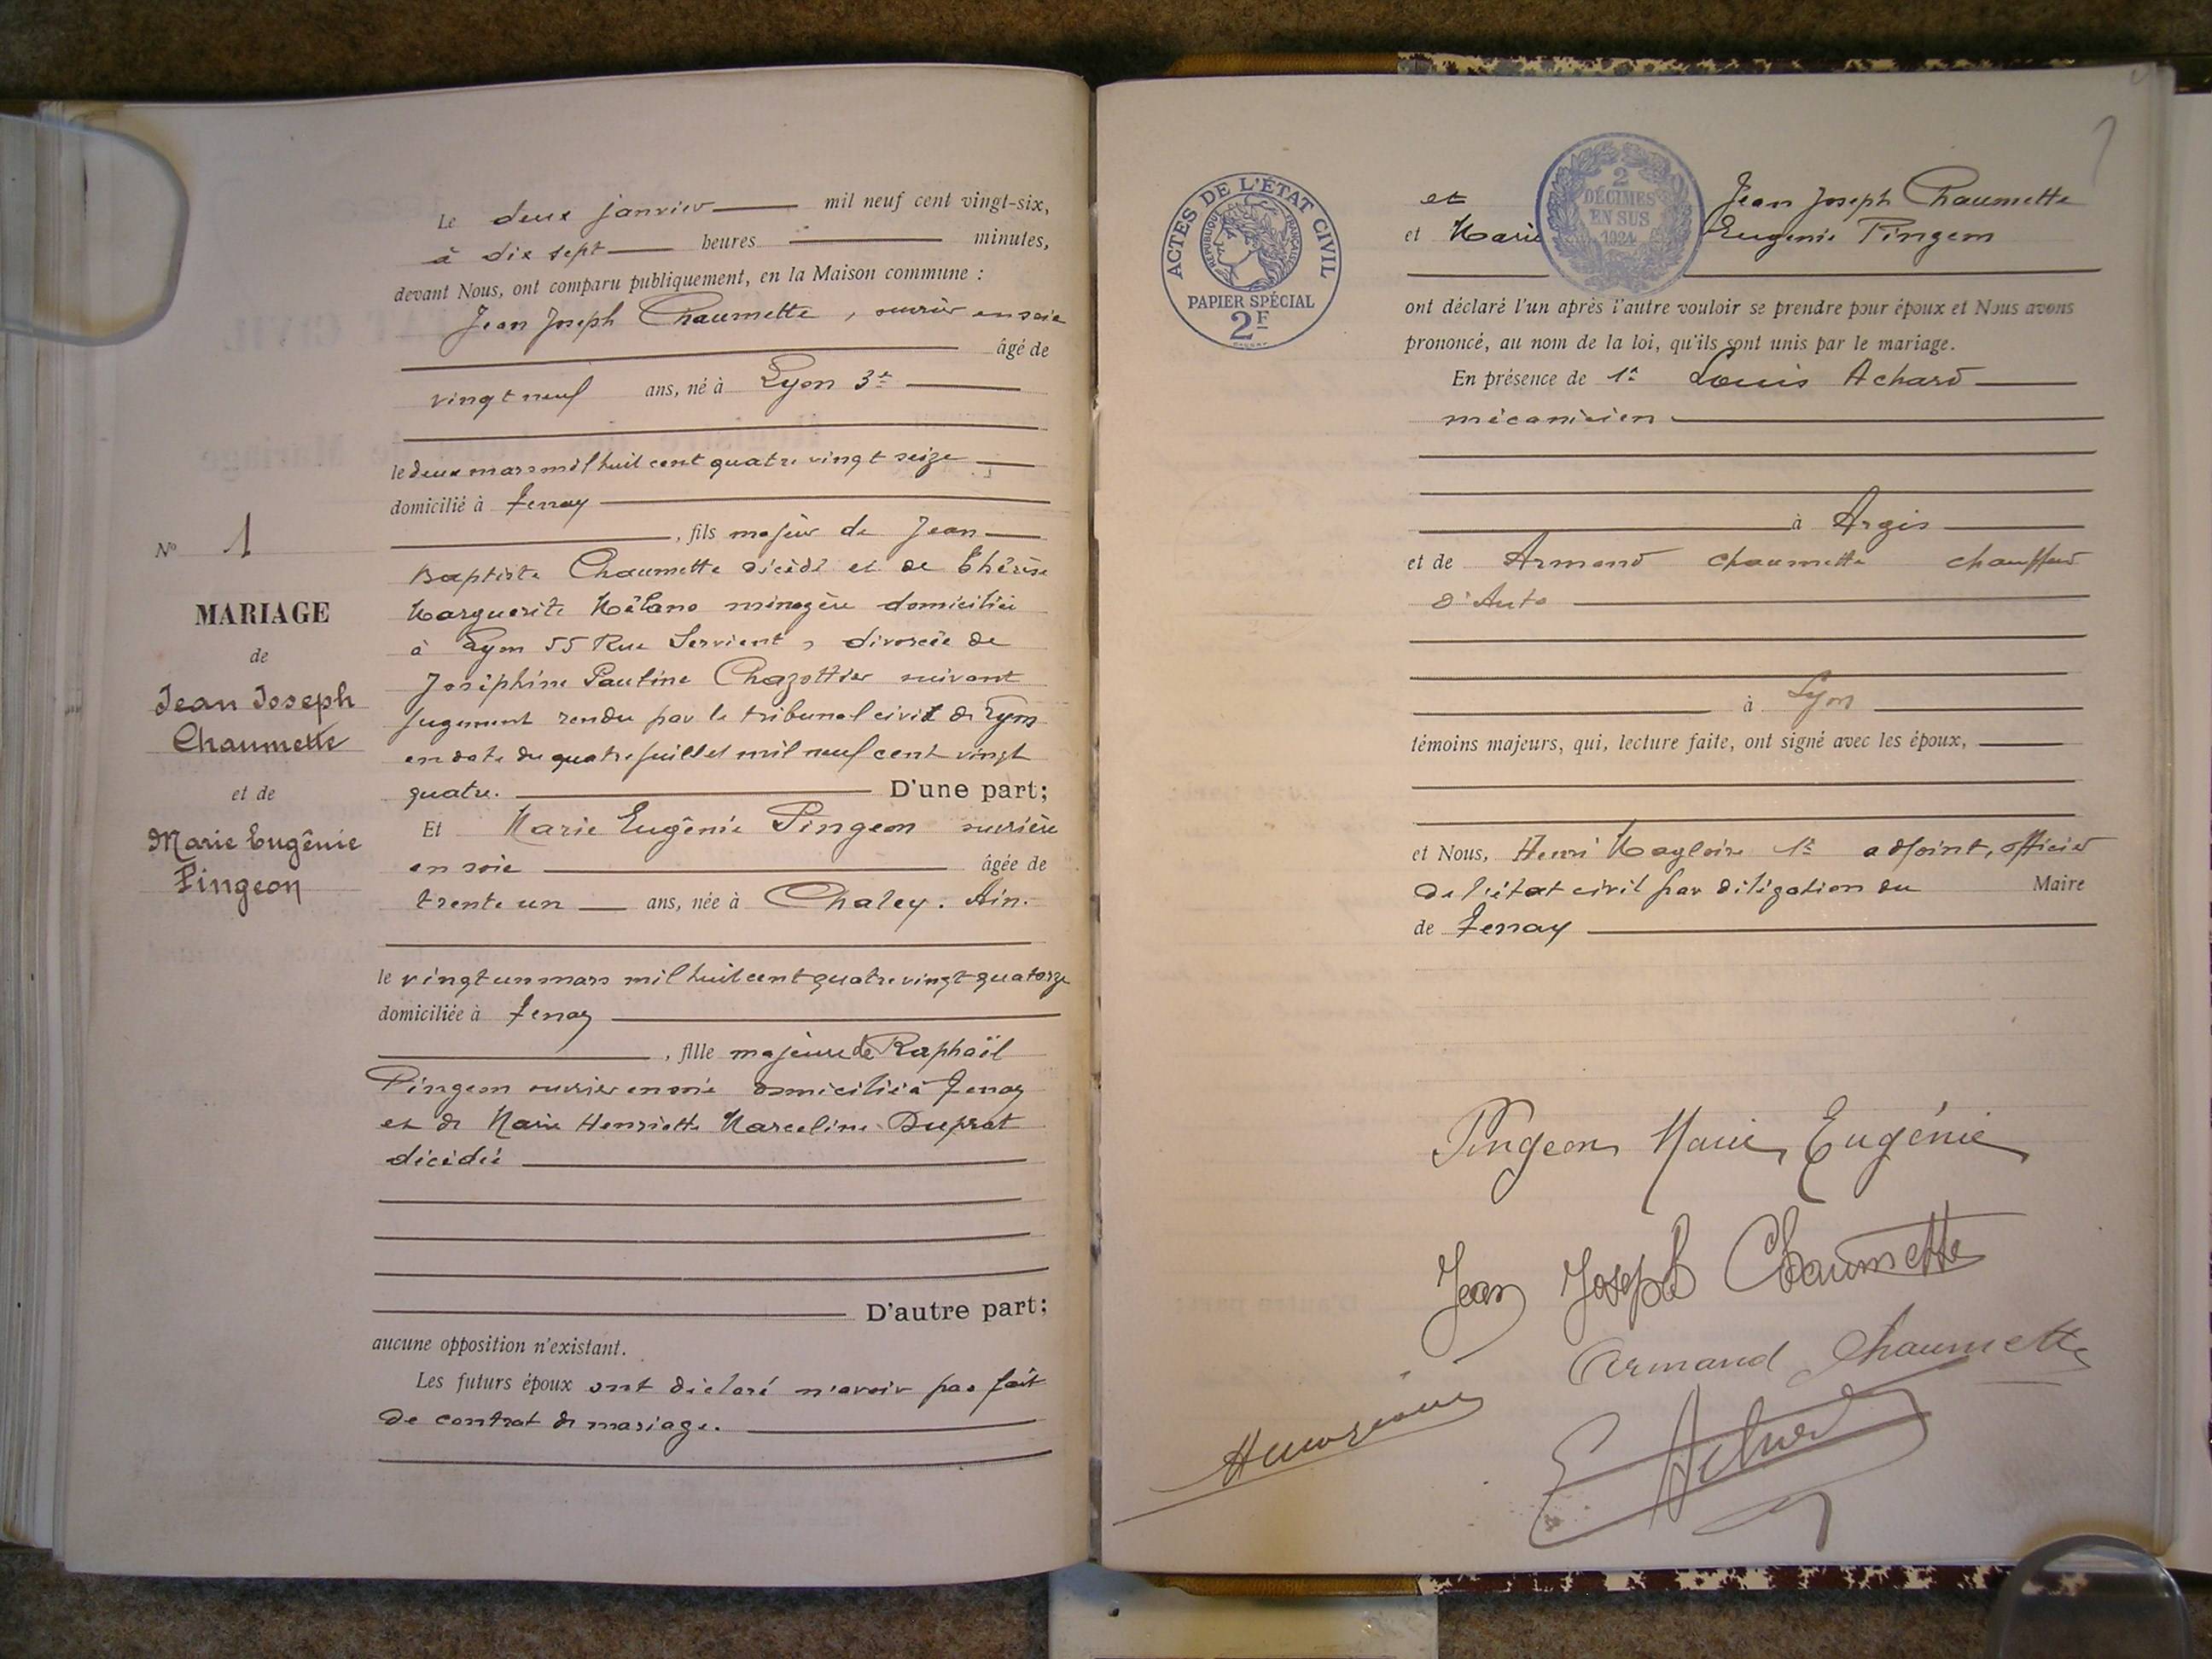 Le deux janvier mil neuf cent vingt-six,
à dix sept heures minutes,
devant Nous, ont comparu publiquement, en la Maison commune :
Jean Joseph Chaumette, ouvrier en soie
âgé de
vingt neuf ans, né à Lyon 3e
le deux mars mil huit cent quatre vingt seize
domicilié à Tenay
, fils majeur de Jean
Baptiste Chaumette décédé et de Thérèse
Marguerite Mélano ménagère domiciliée
à Lyon 55 Rue Servient, divorcée de
Joséphine Pauline Chazottier suivant
jugement rendu par le tribunal civil de Lyon
en date du quatre juillet mil neuf cent vingt
quatre. D'une part;
Et Marie Eugénie Pingeon ouvrière
en soie âgée de
trente un ans, née à Chaley. Ain.
le vingt un mars mil huit cent quatre vingt quatorze
domiciliée à Tenay
, fille majeure de Raphaël
Pingeon ouvrier en soie domicilié à Tenay
et de Marie Henriette Marceline Duprat
décédée
D'autre part;
aucune opposition n'existant.
Les futurs époux ont déclaré n'avoir pas fait
de contrat de mariage.
No 1
MARIAGE
de
Jean Joseph
Chaumette
et de
Marie Eugénie
Pingeon
ACTES DE L'ÉTAT CIVIL
RÉPUBLIQUE FRANÇAISE
PAPIER SPÉCIAL
2F
2
DÉCIMES
EN SUS
1924
et Jean Joseph Chaumette
et Marie Eugenie Pingeon
ont déclaré l'un après l'autre vouloir se prendre pour époux et Nous avons
prononcé, au nom de la loi, qu'ils sont unis par le mariage.
En présence de 1e Louis Achard
mécanicien
à Argis
et de Armand Chaumette chauffeur
d'Auto
à Lyon
témoins majeurs, qui, lecture faite, ont signé avec les époux,
et Nous, Henri Magloire 1e adjoint, officier
de l'état civil par délégation du Maire
de Tenay
Pingeon Marie Eugénie
Jean Joseph Chaumette
Armand Chaumette
Achard